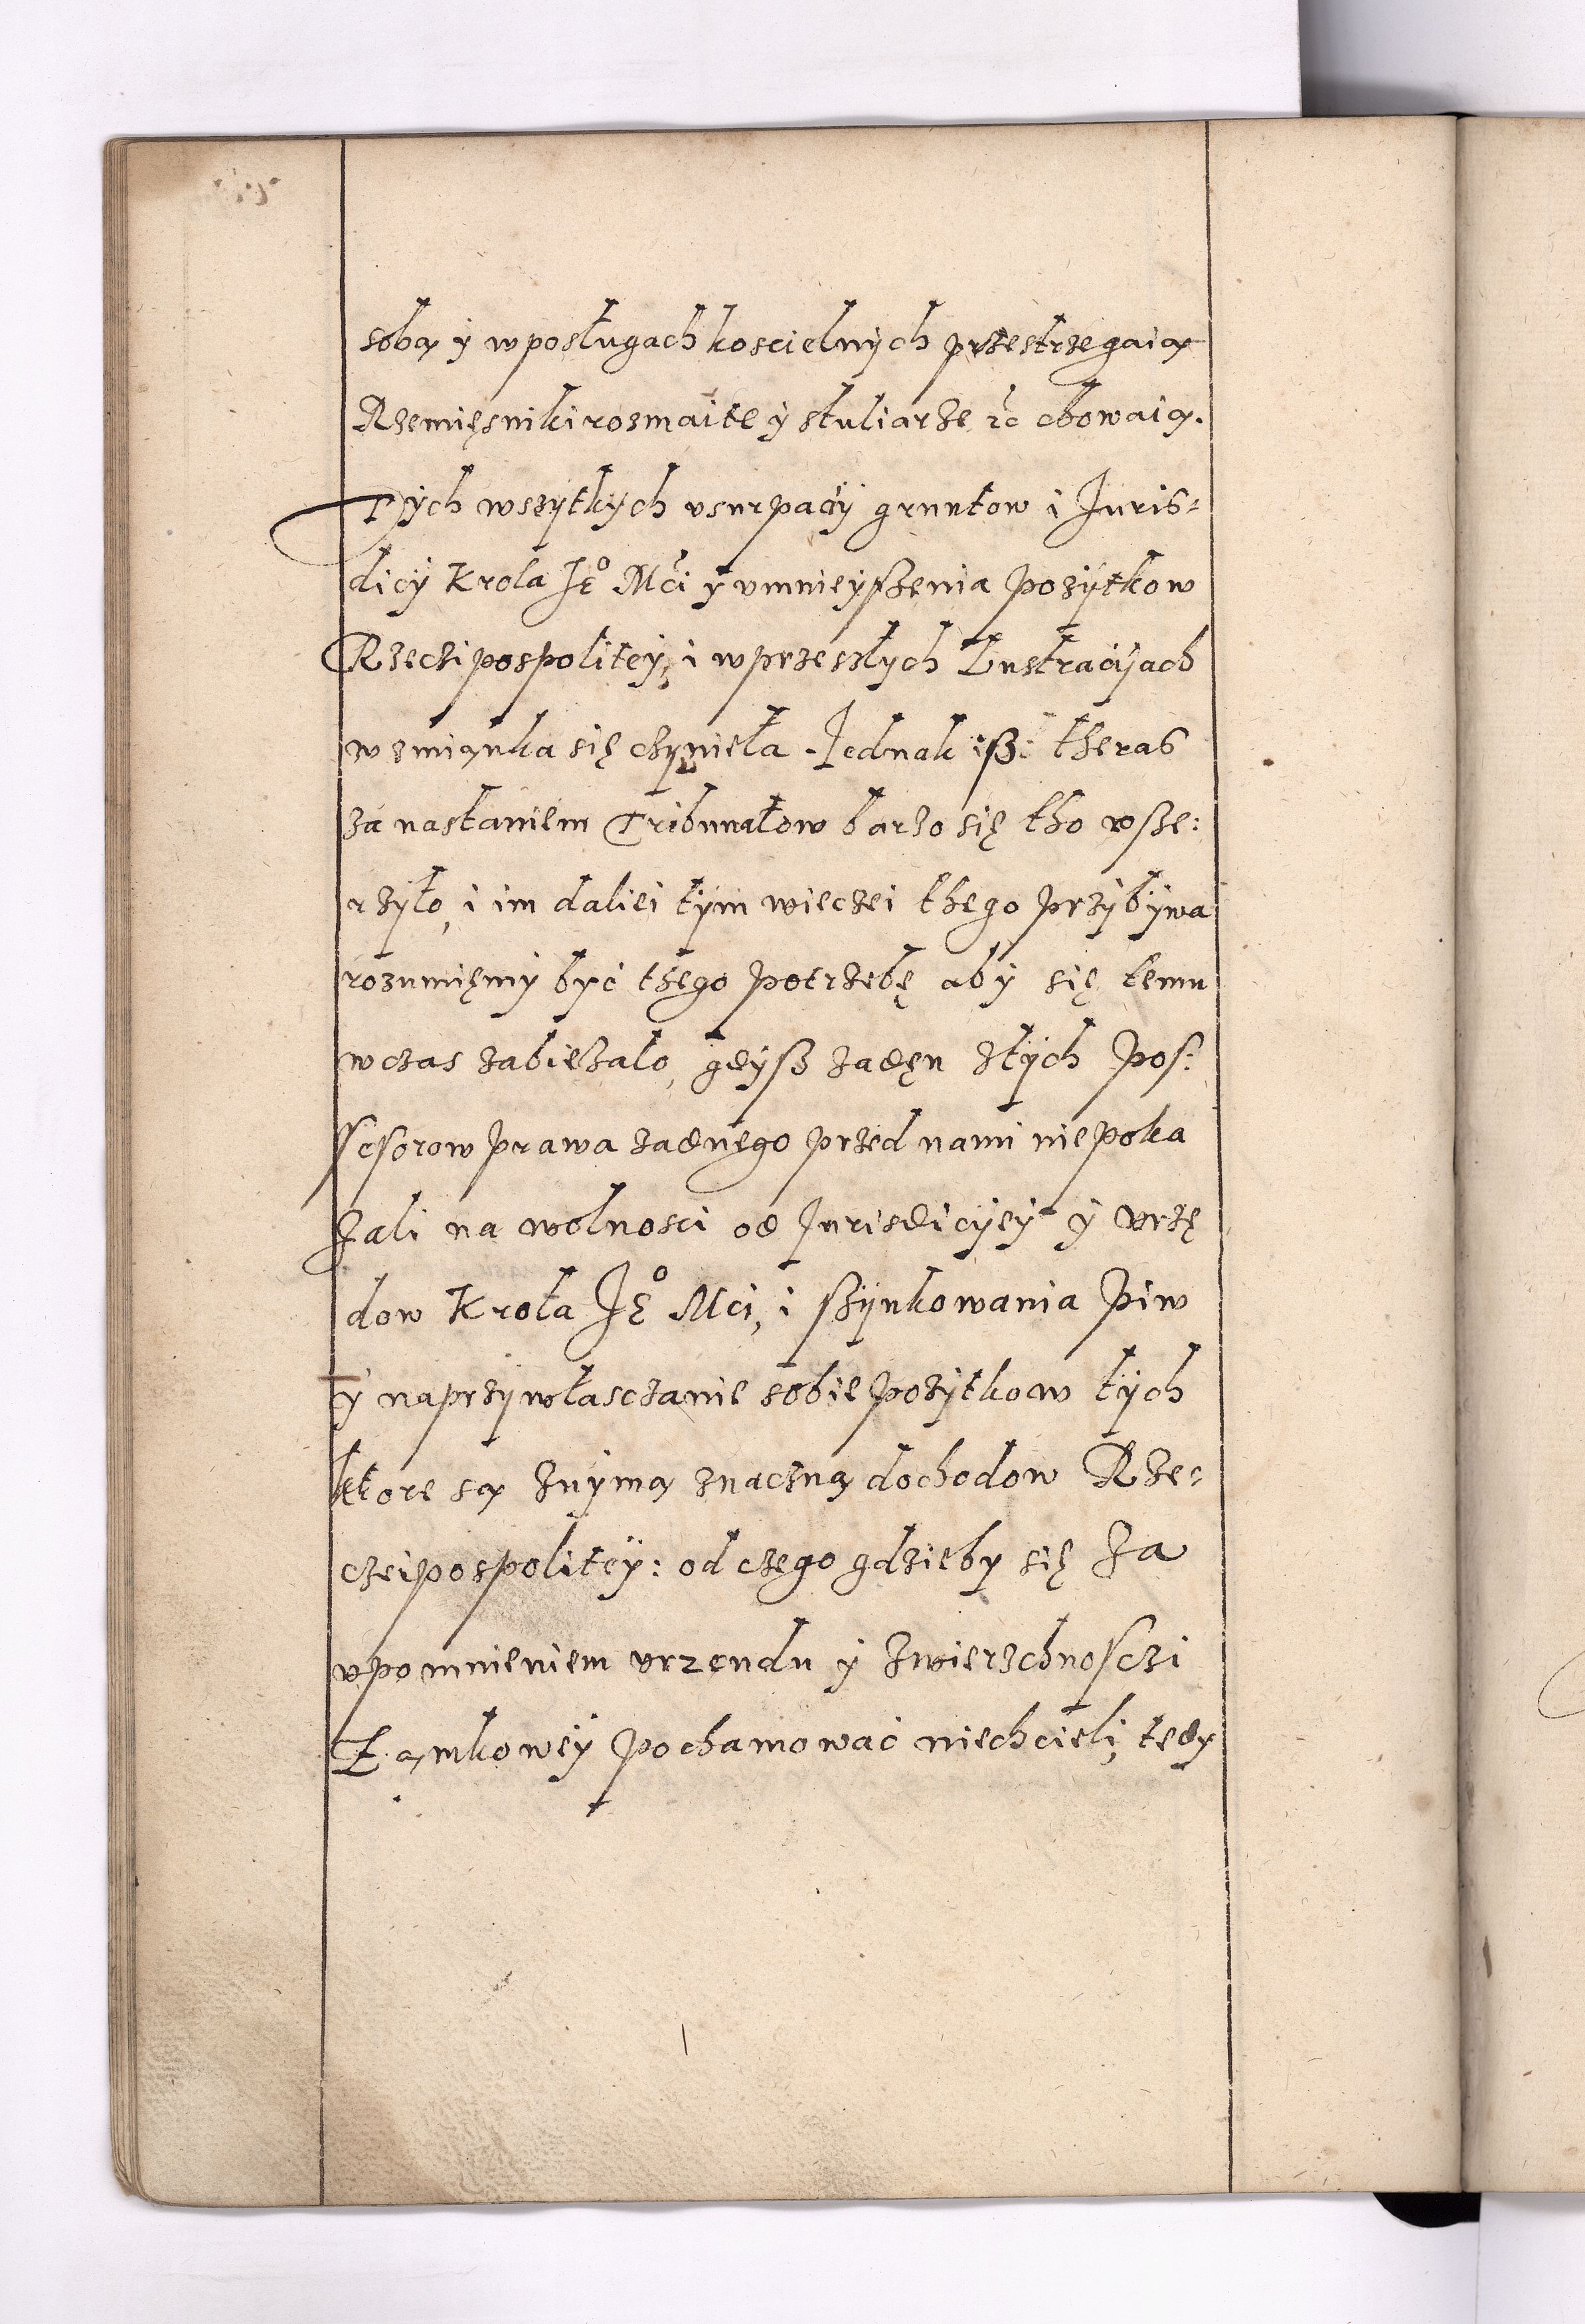 sobą ÿ w posługach koscielnÿch przestrzegaią
Rzemięsniki rozmaite ÿ stuliarze rc chowaią.
Tÿch wszÿtkÿch vsurpaciÿ gruntow i Juris=
dicÿ Krola Je° Mći ÿ vmnieÿszenia pozÿtkow
Rzeczipospoliteÿ, i w przeszłÿch Lustraciÿach
wzmiąnka się czÿnieła. Jednak isz: theras
za nastaniem Tribunałow barzo się tho vsze:
rzÿło, i im daliei tÿm wieczei thego przÿbÿwa
rozumięmÿ bÿc thego potrzebę abÿ się temu
wczas zabiezalo, gdÿsz zadęn ztÿch pos:
sesorow prawa zadnego przed nami nie poka
zali na wolnosci od Jurisdiciÿeÿ ÿ vrzę
dow Krola Je° Mci, i szÿnkowania piw
ÿ na przÿwłasczanie sobie pozÿtkow tÿch
ktore są znÿmą znaczną dochodow Rze=
czeipospoliteÿ: od czego gdziebÿ się za
vpomnieniem vrzendu ÿ zwierzchnosczi
Ząmkoweÿ pochamowac niechcieli, tedÿ